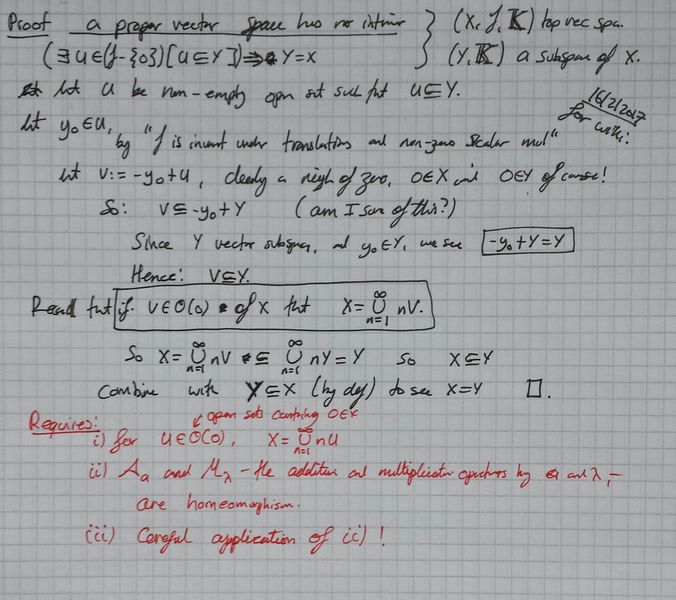 Proof a proper vector space has no interior
(∃U∈(J-{0})[U⊆Y])⇒Y=X
(X, J, 𝕂) top vec spa.
(Y, 𝕂) a subspace of X.
let U be non-empty open set such that U⊆Y.
16/2/2017
for wiki:
let y₀∈U, by "J is invent under translations and non-zero scalar mul"
let V:= -y₀+U, clearly a neigh of zero, 0∈X and 0∈Y of course!
So: V⊆-y₀+Y (am I sure of this?)
Since Y vector subspace, and y₀∈Y, we see -y₀+Y=Y
Hence: V⊆Y.
Recall that if V∈O(0) of X that X=⋃_{n=1}^∞ nV.
So X=⋃_{n=1}^∞ nV ⊆ ⋃_{n=1}^∞ nY=Y So X⊆Y
Combine with Y⊆X (by def) to see X=Y □.
Requires:
open sets containing 0∈X
i) for U∈O(0), X=⋃_{n=1}^∞ nU
ii) Aₐ and M_λ - the additive and multiplicative operators by a and λ, -
are homeomorphism.
(iii) Careful application of ii) !